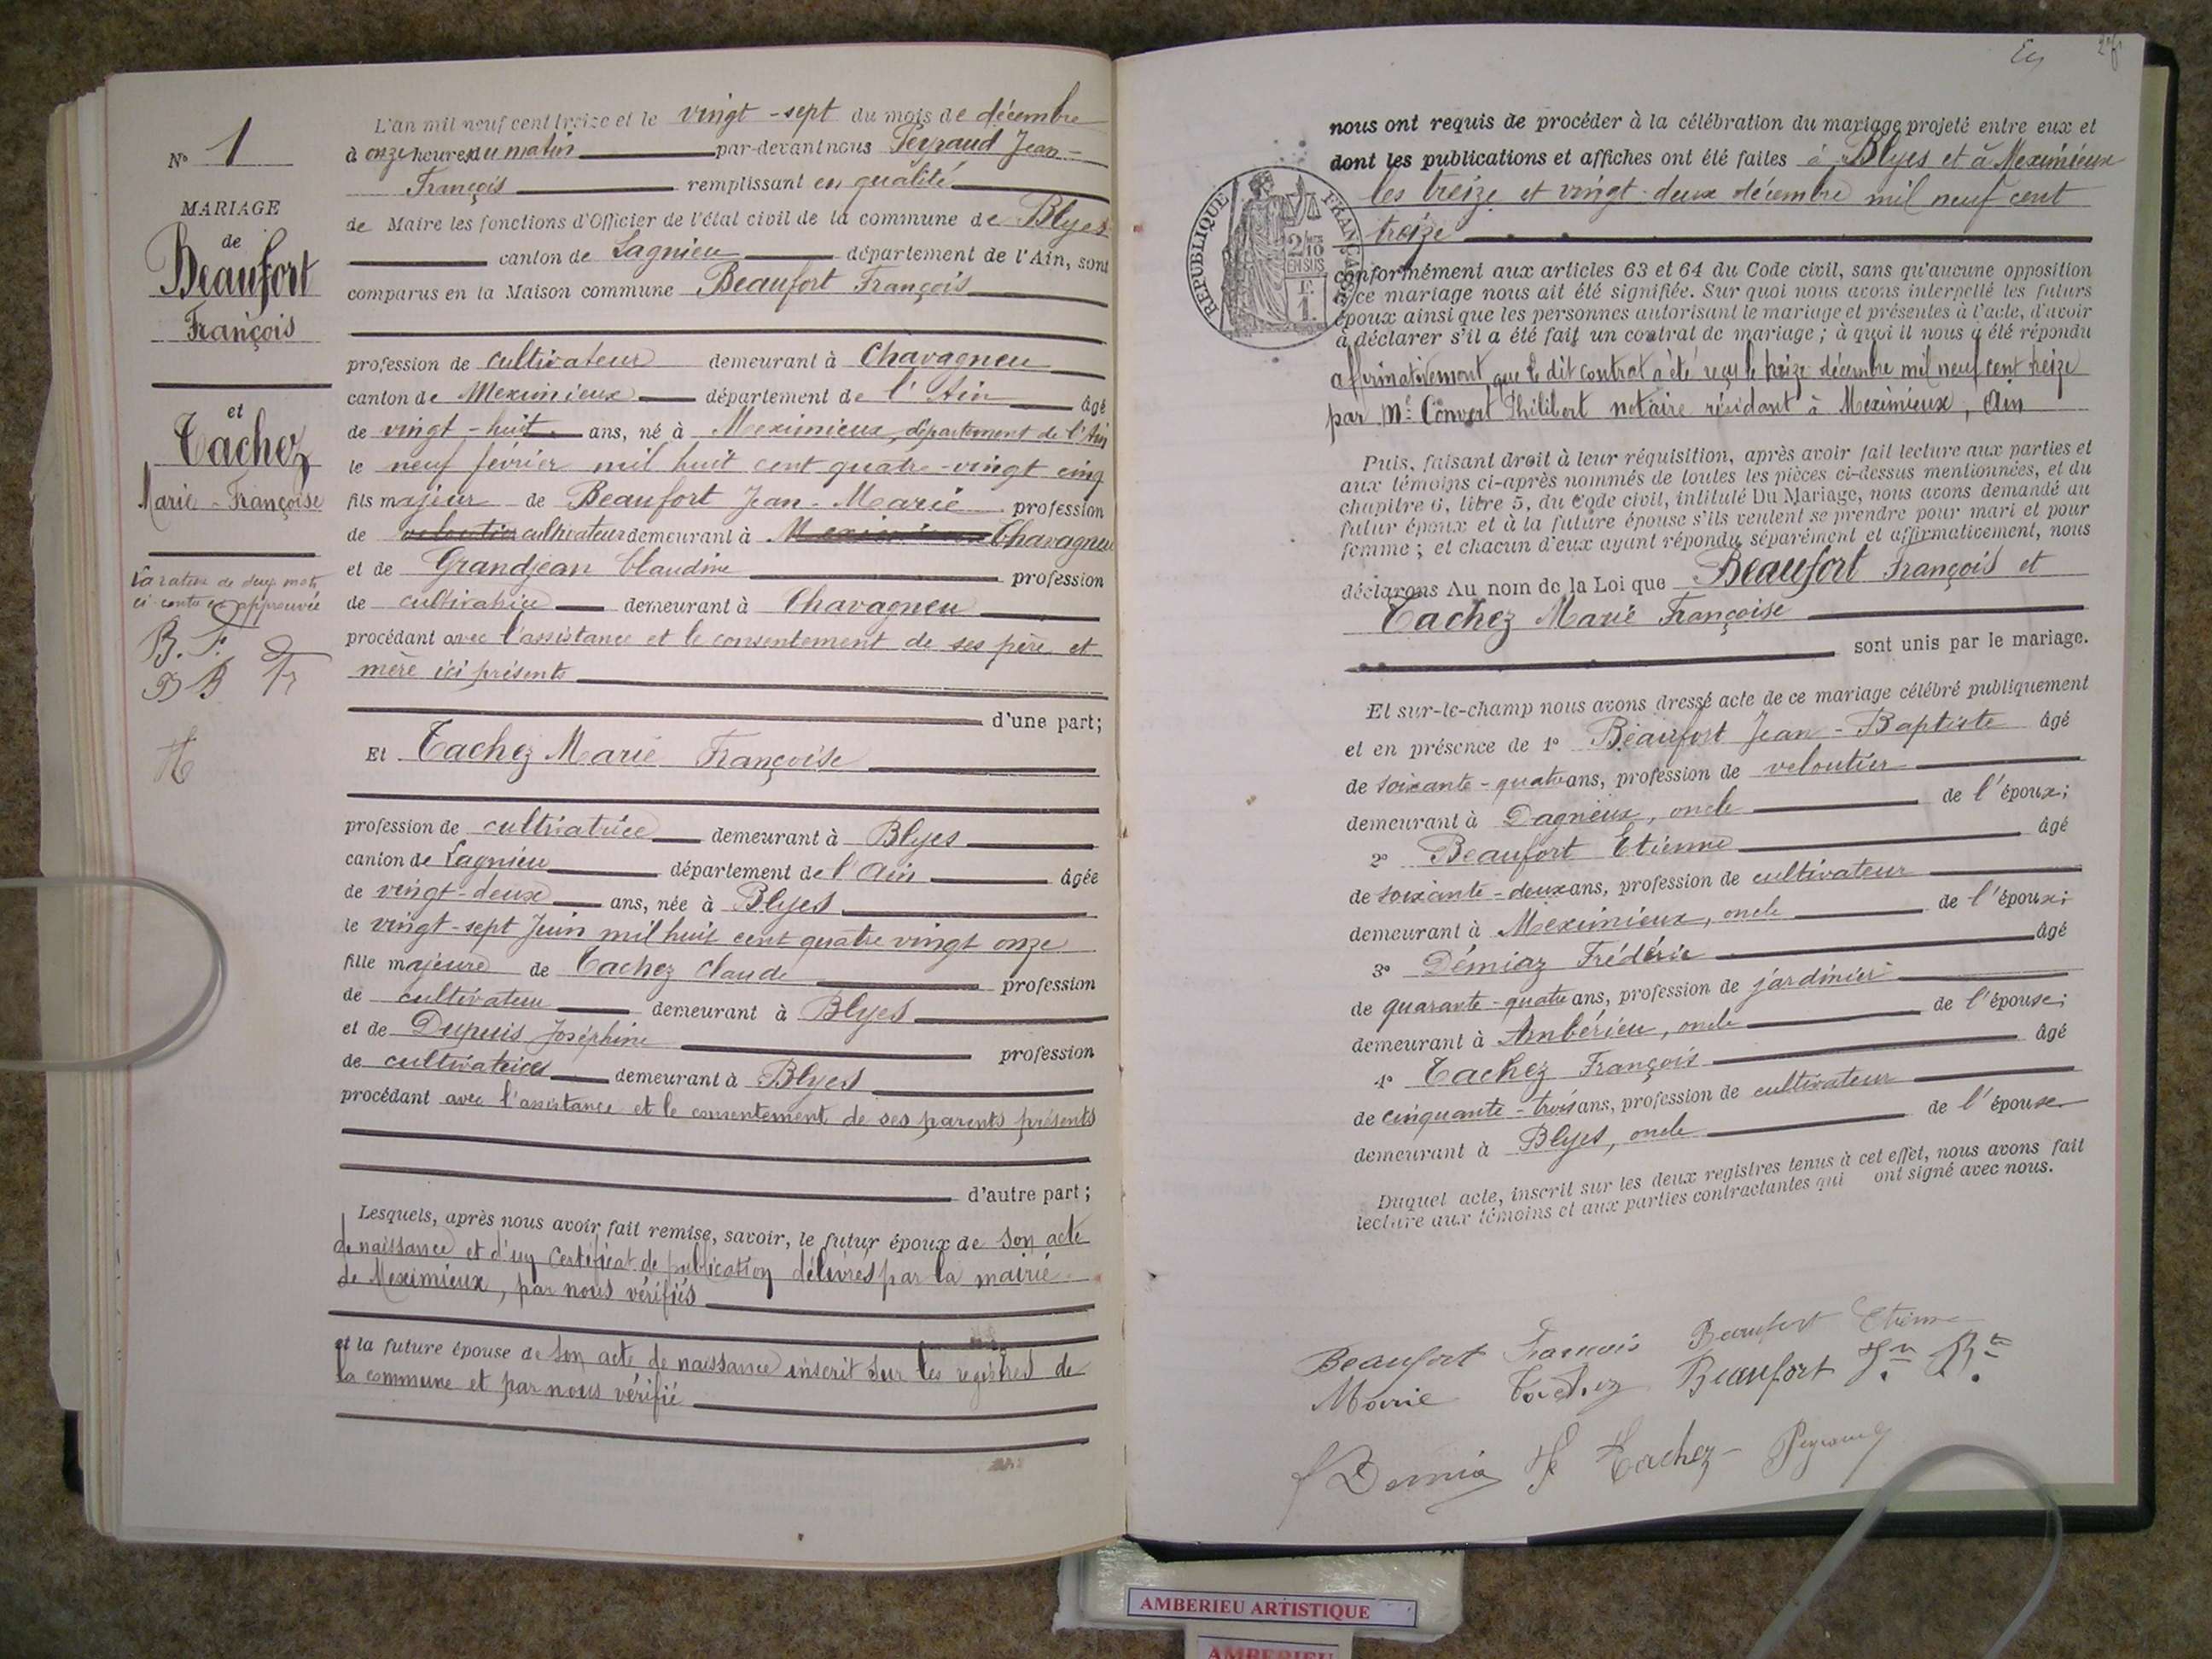 N° 1
MARIAGE
de
Beaufort
François
et
Tachez
Marie-Françoise
La rature de deux mots
ci-contre est approuvée
B. F.
L'an mil neuf cent treize et le vingt-sept du mois de décembre
à onze heures du matin par-devant nous Peyraud Jean-
François remplissant en qualité
de Maire les fonctions d'Officier de l'état civil de la commune de Blyes
canton de Lagnieu département de l'Ain, sont
comparus en la Maison commune Beaufort François
profession de cultivateur demeurant à Chavagneu
canton de Meximieux département de l'Ain âgé
de vingt-huit ans, né à Meximieux, département de l'Ain
le neuf février mil huit cent quatre-vingt cinq
fils majeur de Beaufort Jean-Marie profession
de veloutier cultivateur demeurant à Meximieux Chavagneu
et de Grandjean Claudine profession
de cultivatrice demeurant à Chavagneu
procédant avec l'assistance et le consentement de ses père et
mère ici présents
d'une part;
Et Tachez Marie Françoise
profession de cultivatrice demeurant à Blyes
canton de Lagnieu département de l'Ain âgée
de vingt-deux ans, née à Blyes
le vingt-sept Juin mil huit cent quatre vingt onze
fille majeure de Tachez Claude profession
de cultivateur demeurant à Blyes
et de Dupuis Joséphine profession
de cultivatrice demeurant à Blyes
procédant avec l'assistance et le consentement de ses parents présents
d'autre part;
Lesquels, après nous avoir fait remise, savoir, le futur époux de son acte
de naissance et d'un certificat de publication délivrés par la mairie
de Meximieux, par nous vérifiés
et la future épouse de son acte de naissance inscrit sur les registres de
la commune et par nous vérifié
nous ont requis de procéder à la célébration du mariage projeté entre eux et
dont les publications et affiches ont été faites à Blyes et à Meximieux
les treize et vingt-deux décembre mil neuf cent
treize
RÉPUBLIQUE FRANÇAISE
2/10
EN SUS
1 F.
conformément aux articles 63 et 64 du Code civil, sans qu'aucune opposition
à ce mariage nous ait été signifiée. Sur quoi nous avons interpellé les futurs
époux ainsi que les personnes autorisant le mariage et présentes à l'acte, d'avoir
à déclarer s'il a été fait un contrat de mariage; à quoi il nous a été répondu
affirmativement que le dit contrat a été reçu le treize décembre mil neuf cent treize
par Me Convert Philibert notaire résidant à Meximieux, Ain
Puis, faisant droit à leur réquisition, après avoir fait lecture aux parties et
aux témoins ci-après nommés de toutes les pièces ci-dessus mentionnées, et du
chapitre 6, titre 5, du Code civil, intitulé Du Mariage, nous avons demandé au
futur époux et à la future épouse s'ils veulent se prendre pour mari et pour
femme; et chacun d'eux ayant répondu séparément et affirmativement, nous
déclarons Au nom de la Loi que Beaufort François et
Tachez Marie Françoise
sont unis par le mariage.
Et sur-le-champ nous avons dressé acte de ce mariage célébré publiquement
et en présence de 1° Beaufort Jean-Baptiste âgé
de soixante-quatre ans, profession de veloutier
demeurant à Dagneux, oncle de l'époux;
2° Beaufort Etienne âgé
de soixante-deux ans, profession de cultivateur
demeurant à Meximieux, oncle de l'époux;
3° Démiaz Frédéric âgé
de quarante-quatre ans, profession de jardinier
demeurant à Ambérieu, oncle de l'épouse;
4° Tachez François âgé
de cinquante-trois ans, profession de cultivateur
demeurant à Blyes, oncle de l'épouse
Duquel acte, inscrit sur les deux registres tenus à cet effet, nous avons fait
lecture aux témoins et aux parties contractantes qui ont signé avec nous.
Beaufort François Beaufort Etienne
Marie Tachez Beaufort Jn Bte
Tachez Peyraud
AMBERIEU ARTISTIQUE
AMBERIEU